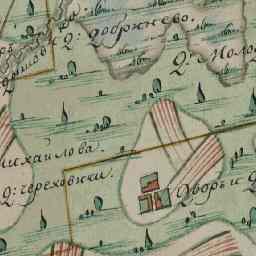 Д: Добрнево.
Д: Моло
Михайлова.
Д: Череховки
Дворъ и